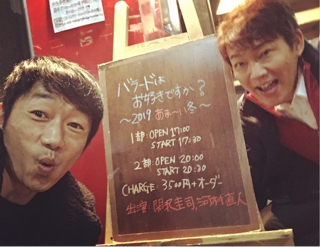 バラードは
お好きですか?
〜2019 あぁ〜い冬〜
1部: OPEN 17:00
START 17:30
2部: OPEN 20:00
START 20:30
CHARGE 3500円+オーダー
出演 関根圭司、河村直人